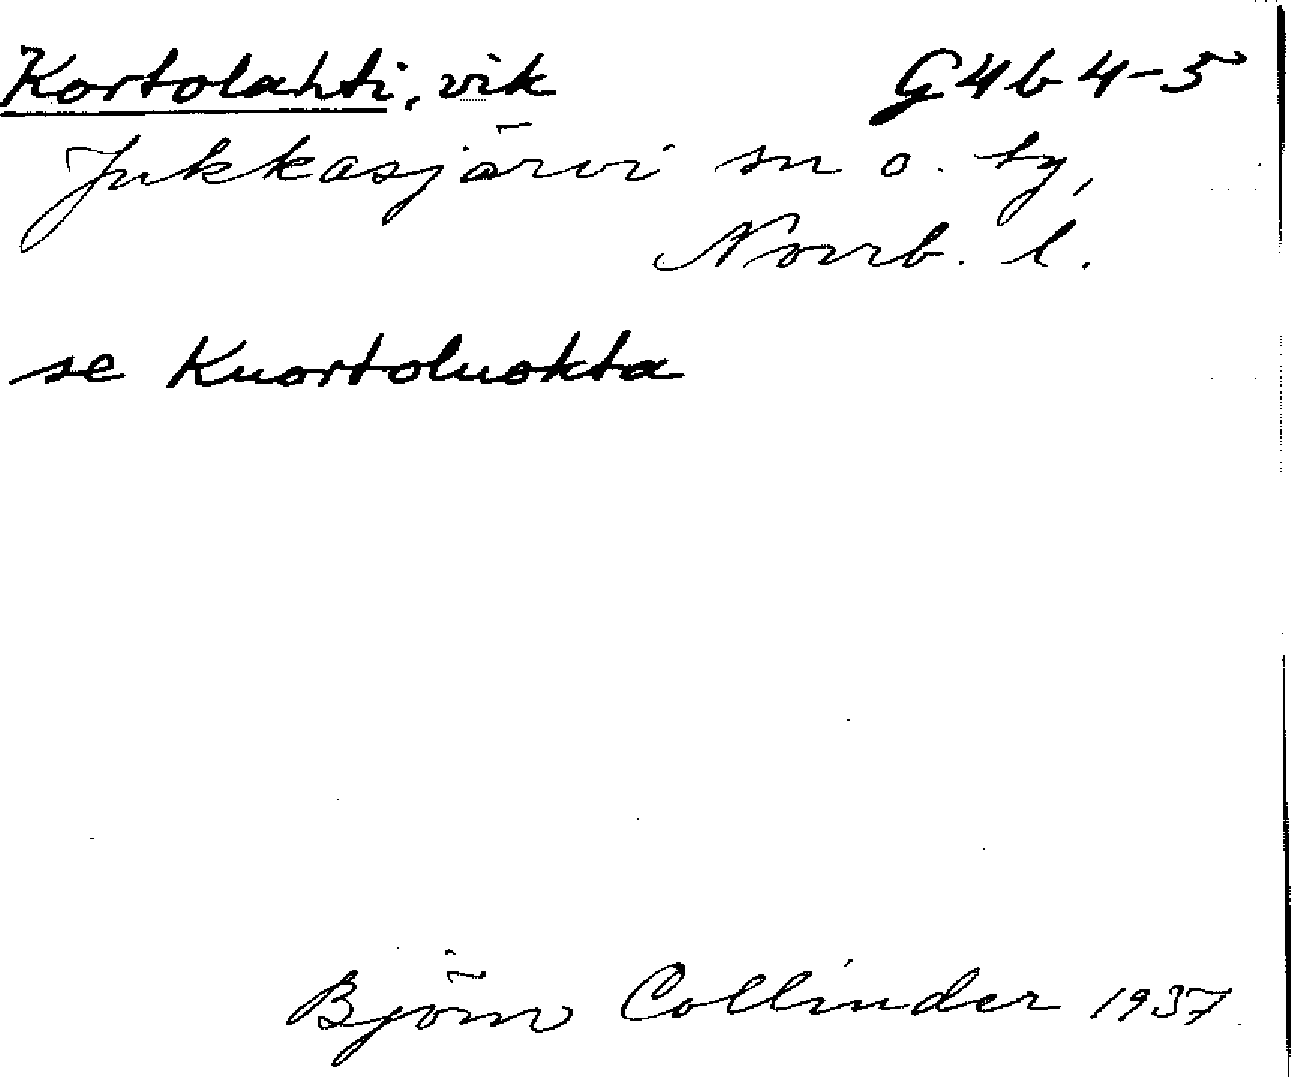 Kortolahti, vik G4b 4-5
Jukkasjärvi sn o. tg,
Norrb. l.
se Kuortoluokta
Björn Collinder 1937